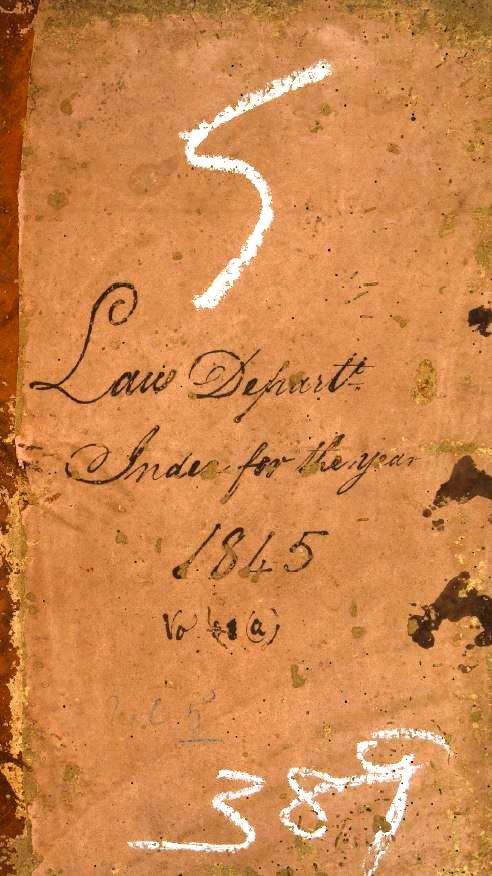 5
Law Departt.
Index for the year
1845
(a)
5
389